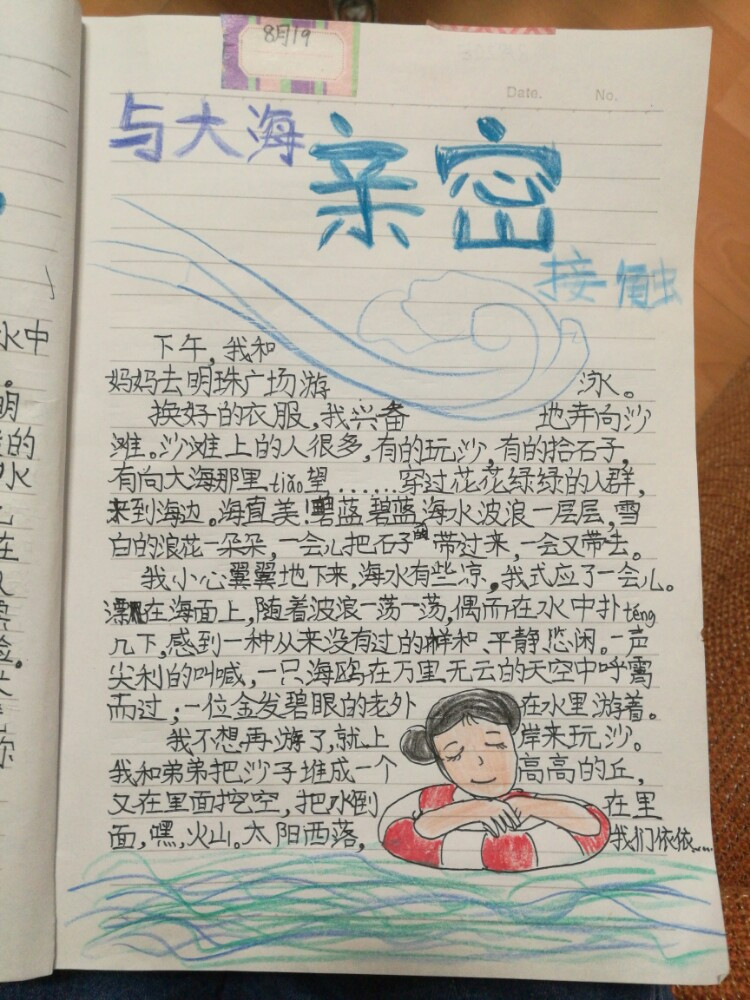 8月19
Date. No.
与大海
亲密
接触
下午，我和
妈妈去明珠广场游泳。
换好的衣服，我兴备地奔向沙
滩。沙滩上的人很多，有的玩沙，有的拾石子，
有向大海那里tiǎo望……穿过花花绿绿的人群，
来到海边。海直美！碧蓝碧蓝海水波浪一层层，雪
白的浪花一朵朵，一会儿把石子带过来，一会又带去。
我小心翼翼地下来，海水有些凉，我式应了一会儿。
漂在海面上，随着波浪一荡一荡，偶而在水中扑téng
几下，感到一种从来没有过的祥和、平静、悠闲。一声
尖利的叫喊，一只海鸥在万里无云的天空中呼
而过；一位金发碧眼的老外在水里游着。
我不想再游了，就上岸来玩沙。
我和弟弟把沙子堆成一个高高的丘，
又在里面挖空，把水倒在里
面，嘿，火山。太阳西落，我们依依……
水中
。
明
的
水
在